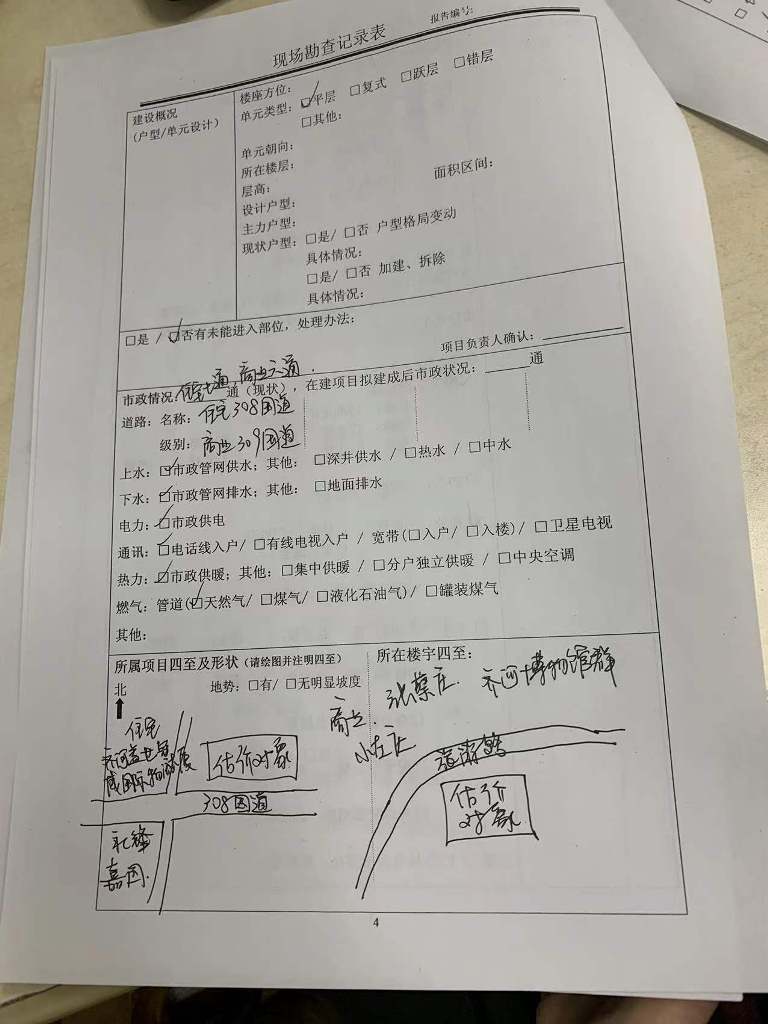 现场勘查记录表
报告编号:
建设概况
(户型/单元设计)
楼座方位:
单元类型: ☑平层 □复式 □跃层 □错层
□其他:
单元朝向:
所在楼层:
层高: 面积区间:
设计户型:
主力户型:
现状户型: □是/ □否 户型格局变动
具体情况:
□是/ □否 加建、拆除
具体情况:
□是 / ☑否有未能进入部位，处理办法:
项目负责人确认:
市政情况: 住宅七通，商业六通. 通（现状），在建项目拟建成后市政状况: 通
道路: 名称: 住宅308国道
级别: 商业309国道
上水: ☑市政管网供水; 其他: □深井供水 / □热水 / □中水
下水: ☑市政管网排水; 其他: □地面排水
电力: ☑市政供电
通讯: ☑电话线入户/ □有线电视入户 / 宽带(□入户/ □入楼)/ □卫星电视
热力: ☑市政供暖; 其他:□集中供暖 / □分户独立供暖 / □中央空调
燃气: 管道(☑天然气/ □煤气/ □液化石油气)/ □罐装煤气
其他:
所属项目四至及形状（请绘图并注明四至）
北
地势: □有/ □无明显坡度
住宅
估价对象
308国道
嘉园.
所在楼宇四至:
商业.
齐河博物馆群
估价
对象
4